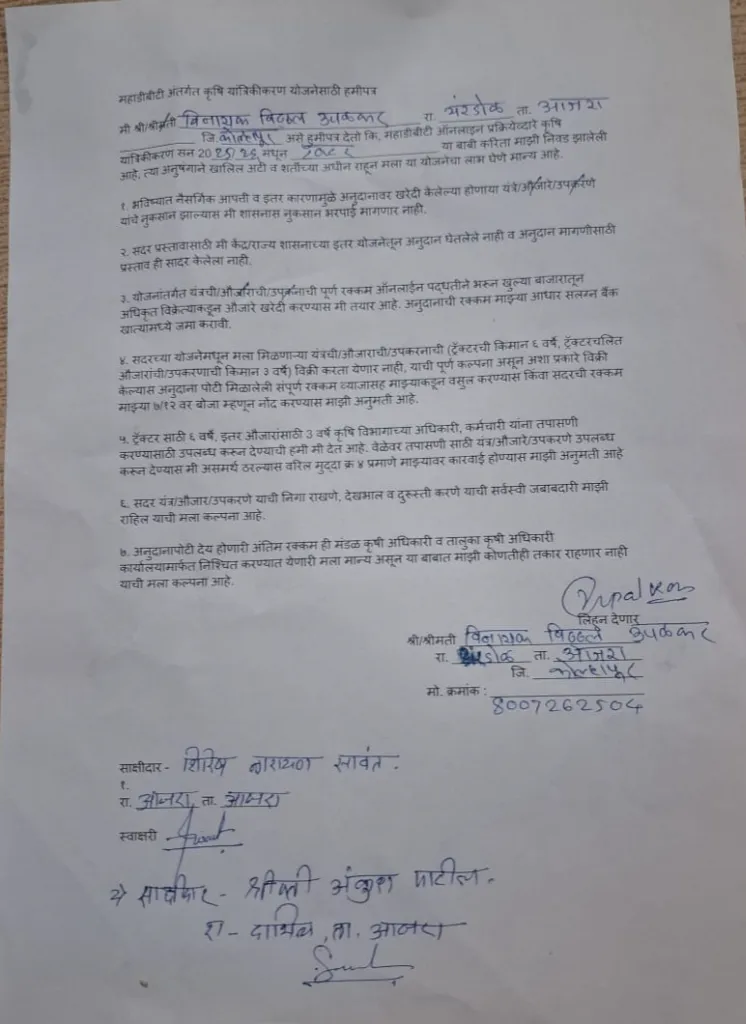 महाडीबीटी अंतर्गत कृषि यांत्रिकीकरण योजनेसाठी हमीपत्र
मी श्री/श्रीमती विनायक विठ्ठल उपळकर रा. सरडोक ता. आजरा
जि. कोल्हापूर असे हुमीपत्र देतो कि, महाडीबीटी ऑनलाइन प्रक्रियेव्दारे कृषि
यांत्रिकीकरण सन 2025/26 मधून या बाबी करिता माझी निवड झालेली
आहे, त्या अनुषगाने खालिल अटी व शर्तीच्या अधीन राहून मला या योजनेचा लाभ घेणे मान्य आहे.
१. भविष्यात नैसर्गिक आपत्ती व इतर कारणामुळे अनुदानावर खरेदी केलेल्या होणाया यंत्रे/औजारे/उपकरणे
यांचे नुकसान झाल्यास मी शासनास नुकसान भरपाई मागणार नाही.
२. सदर प्रस्तावासाठी मी केंद्र/राज्य शासनाच्या इतर योजनेतून अनुदान घेतलेले नाही व अनुदान मागणीसाठी
प्रस्ताव ही सादर केलेला नाही.
३. योजनांतर्गत यंत्रची/औजाराची/उपकृनाची पूर्ण रक्कम ऑनलाईन पद्धतीने भरून खुल्या बाजारातून
अधिकृत विक्रेत्याकडून औजारे खरेदी करण्यास मी तयार आहे. अनुदानाची रक्कम माझ्या आधार सलग्न बँक
खात्यामध्ये जमा करावी.
४. सदरच्या योजनेमधून मला मिळणाऱ्या यंत्रची/औजाराची/उपकरनाची (ट्रॅक्टरची किमान ६ वर्षे, ट्रॅक्टरचलित
औजारांची/उपकरणाची किमान ३ वर्षे) विक्री करता येणार नाही, याची पूर्ण कल्पना असून अशा प्रकारे विक्री
केल्यास अनुदाना पोटी मिळालेली संपूर्ण रक्कम व्याजासह माझ्याकडून वसुल करण्यास किंवा सदरची रक्कम
माझ्या ७/१२ वर बोजा म्हणून नोंद करण्यास माझी अनुमती आहे.
५. ट्रॅक्टर साठी ६ वर्षे, इतर औजारांसाठी 3 वर्षे कृषि विभागाच्या अधिकारी, कर्मचारी यांना तपासणी
करण्यासाठी उपलब्ध करून देण्याची हमी मी देत आहे. वेळेवर तपासणी साठी यंत्र/औजारे/उपकरणे उपलब्ध
करून देण्यास मी असमर्थ ठरल्यास वरिल मुद्दा क्र ४ प्रमाणे माझ्यावर कारवाई होण्यास माझी अनुमती आहे
६. सदर यंत्र/औजार/उपकरणे याची निगा राखणे, देखभाल व दुरूस्ती करणे याची सर्वस्वी जबाबदारी माझी
राहिल याची मला कल्पना आहे.
७. अनुदानापोटी देय होणारी अंतिम रक्कम ही मंडळ कृषी अधिकारी व तालुका कृषी अधिकारी
कार्यालयामार्फत निश्चित करण्यात येणारी मला मान्य असून या बाबात माझी कोणतीही तकार राहणार नाही
याची मला कल्पना आहे.
लिहून देणार
श्री/श्रीमती विनायक विठ्ठल उपळकर
रा. ता. आजरा
जि. कोल्हापूर
मो. क्रमांक :
8007262504
साक्षीदार - शिरिष नारायण सावंत.
१.
रा. आजरा, ता. आजरा
स्वाक्षरी
२ साक्षीदार - अंकुश पाटील.
रा - ता. आजरा